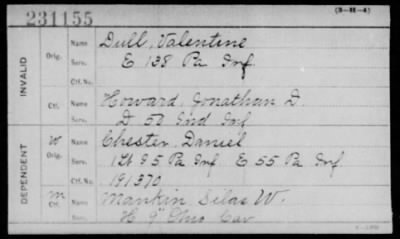 231155
(3-H-4)
INVALID
Orig.
Name Dull, Valentine
Serv. E 138 Pa Inf.
Ctf. No.
Ctf.
Name Howard, Jonathan D.
Serv. D 50 Ind Inf
DEPENDENT
W
Orig.
Name Chester, Daniel
Serv. 1 Lt 95 Pa Inf E 55 Pa Inf.
Ctf. No. 191370
M
Ctf.
Name Mankin Silas W.
Serv. H 9" Ohio Cav